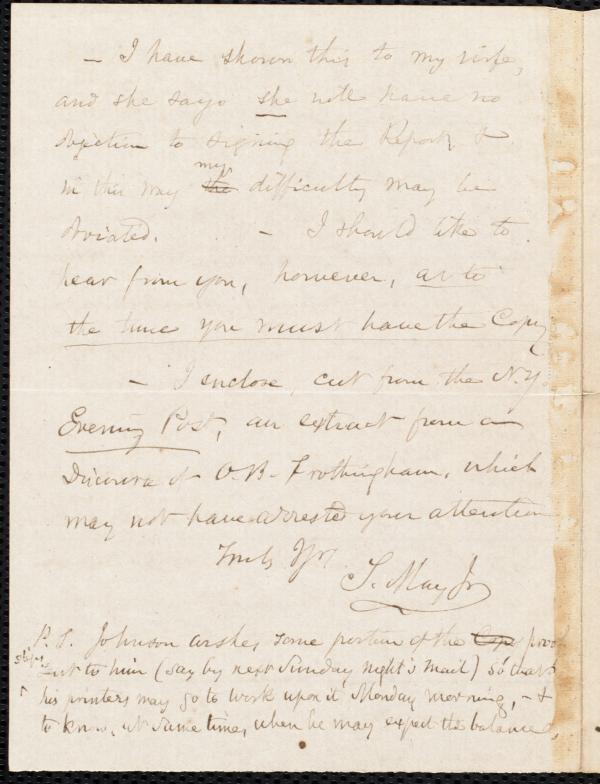 – I have shown this to my wife,
and she says she will have no
objection to signing the Report, &
in this way my the difficulty may be
obviated. – I should like to
hear from you, however, as to
the time you must have the Copy
– I enclose, cut from the N.Y.
Evening Post, an extract from a
Discourse of O.B. Frothingham, which
may not have arrested your attention
Truly Yrs
S. May Jr
P.S. Johnson wishes some portion of the Copy proof
slips sent to him (say by next Sunday night's mail) so that
his printers may go to work upon it Monday morning, – &
to know, at same time, when he may expect the balance.